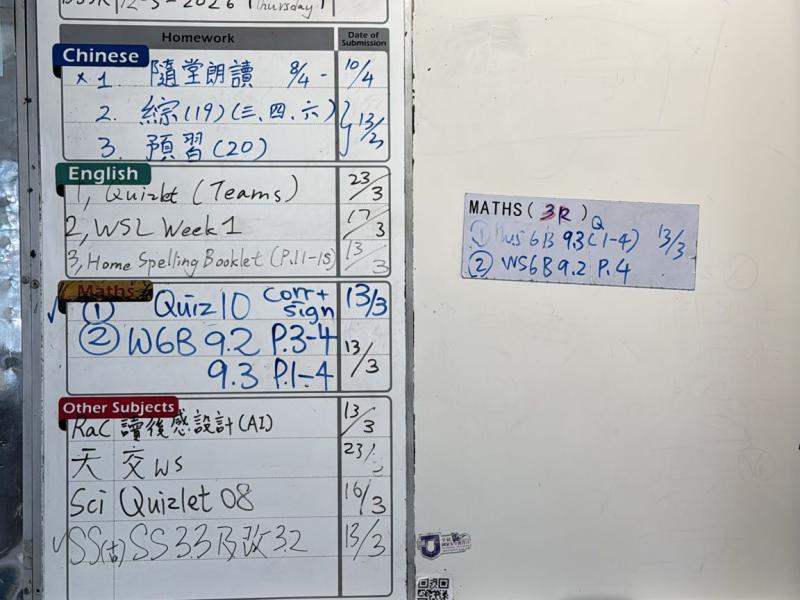 12-3-2026 Thursday
Homework Date of Submission
Chinese
x 1. 隨堂朗讀 8/4 - 10/4
2. 綜(19)(三、四、六)
3. 預習(20) } 13/3
English
1, Quizlet (Teams) 23/3
2, WSL Week 1 17/3
3, Home Spelling Booklet (P.11-15) 13/3
Maths
✓ ① Quiz 10 corr + sign 13/3
② W6B 9.2 P.3-4
9.3 P.1-4 13/3
Other Subjects
RaC 讀後感設計(AI) 13/3
天 交 ws 23/3
Sci Quizlet 08 16/3
✓ SS(古) SS 3.3 及改 3.2 13/3
MATHS ( 3R )
① WS 6B 9.3 Q(1-4) 13/3
② WS6B 9.2 P.4